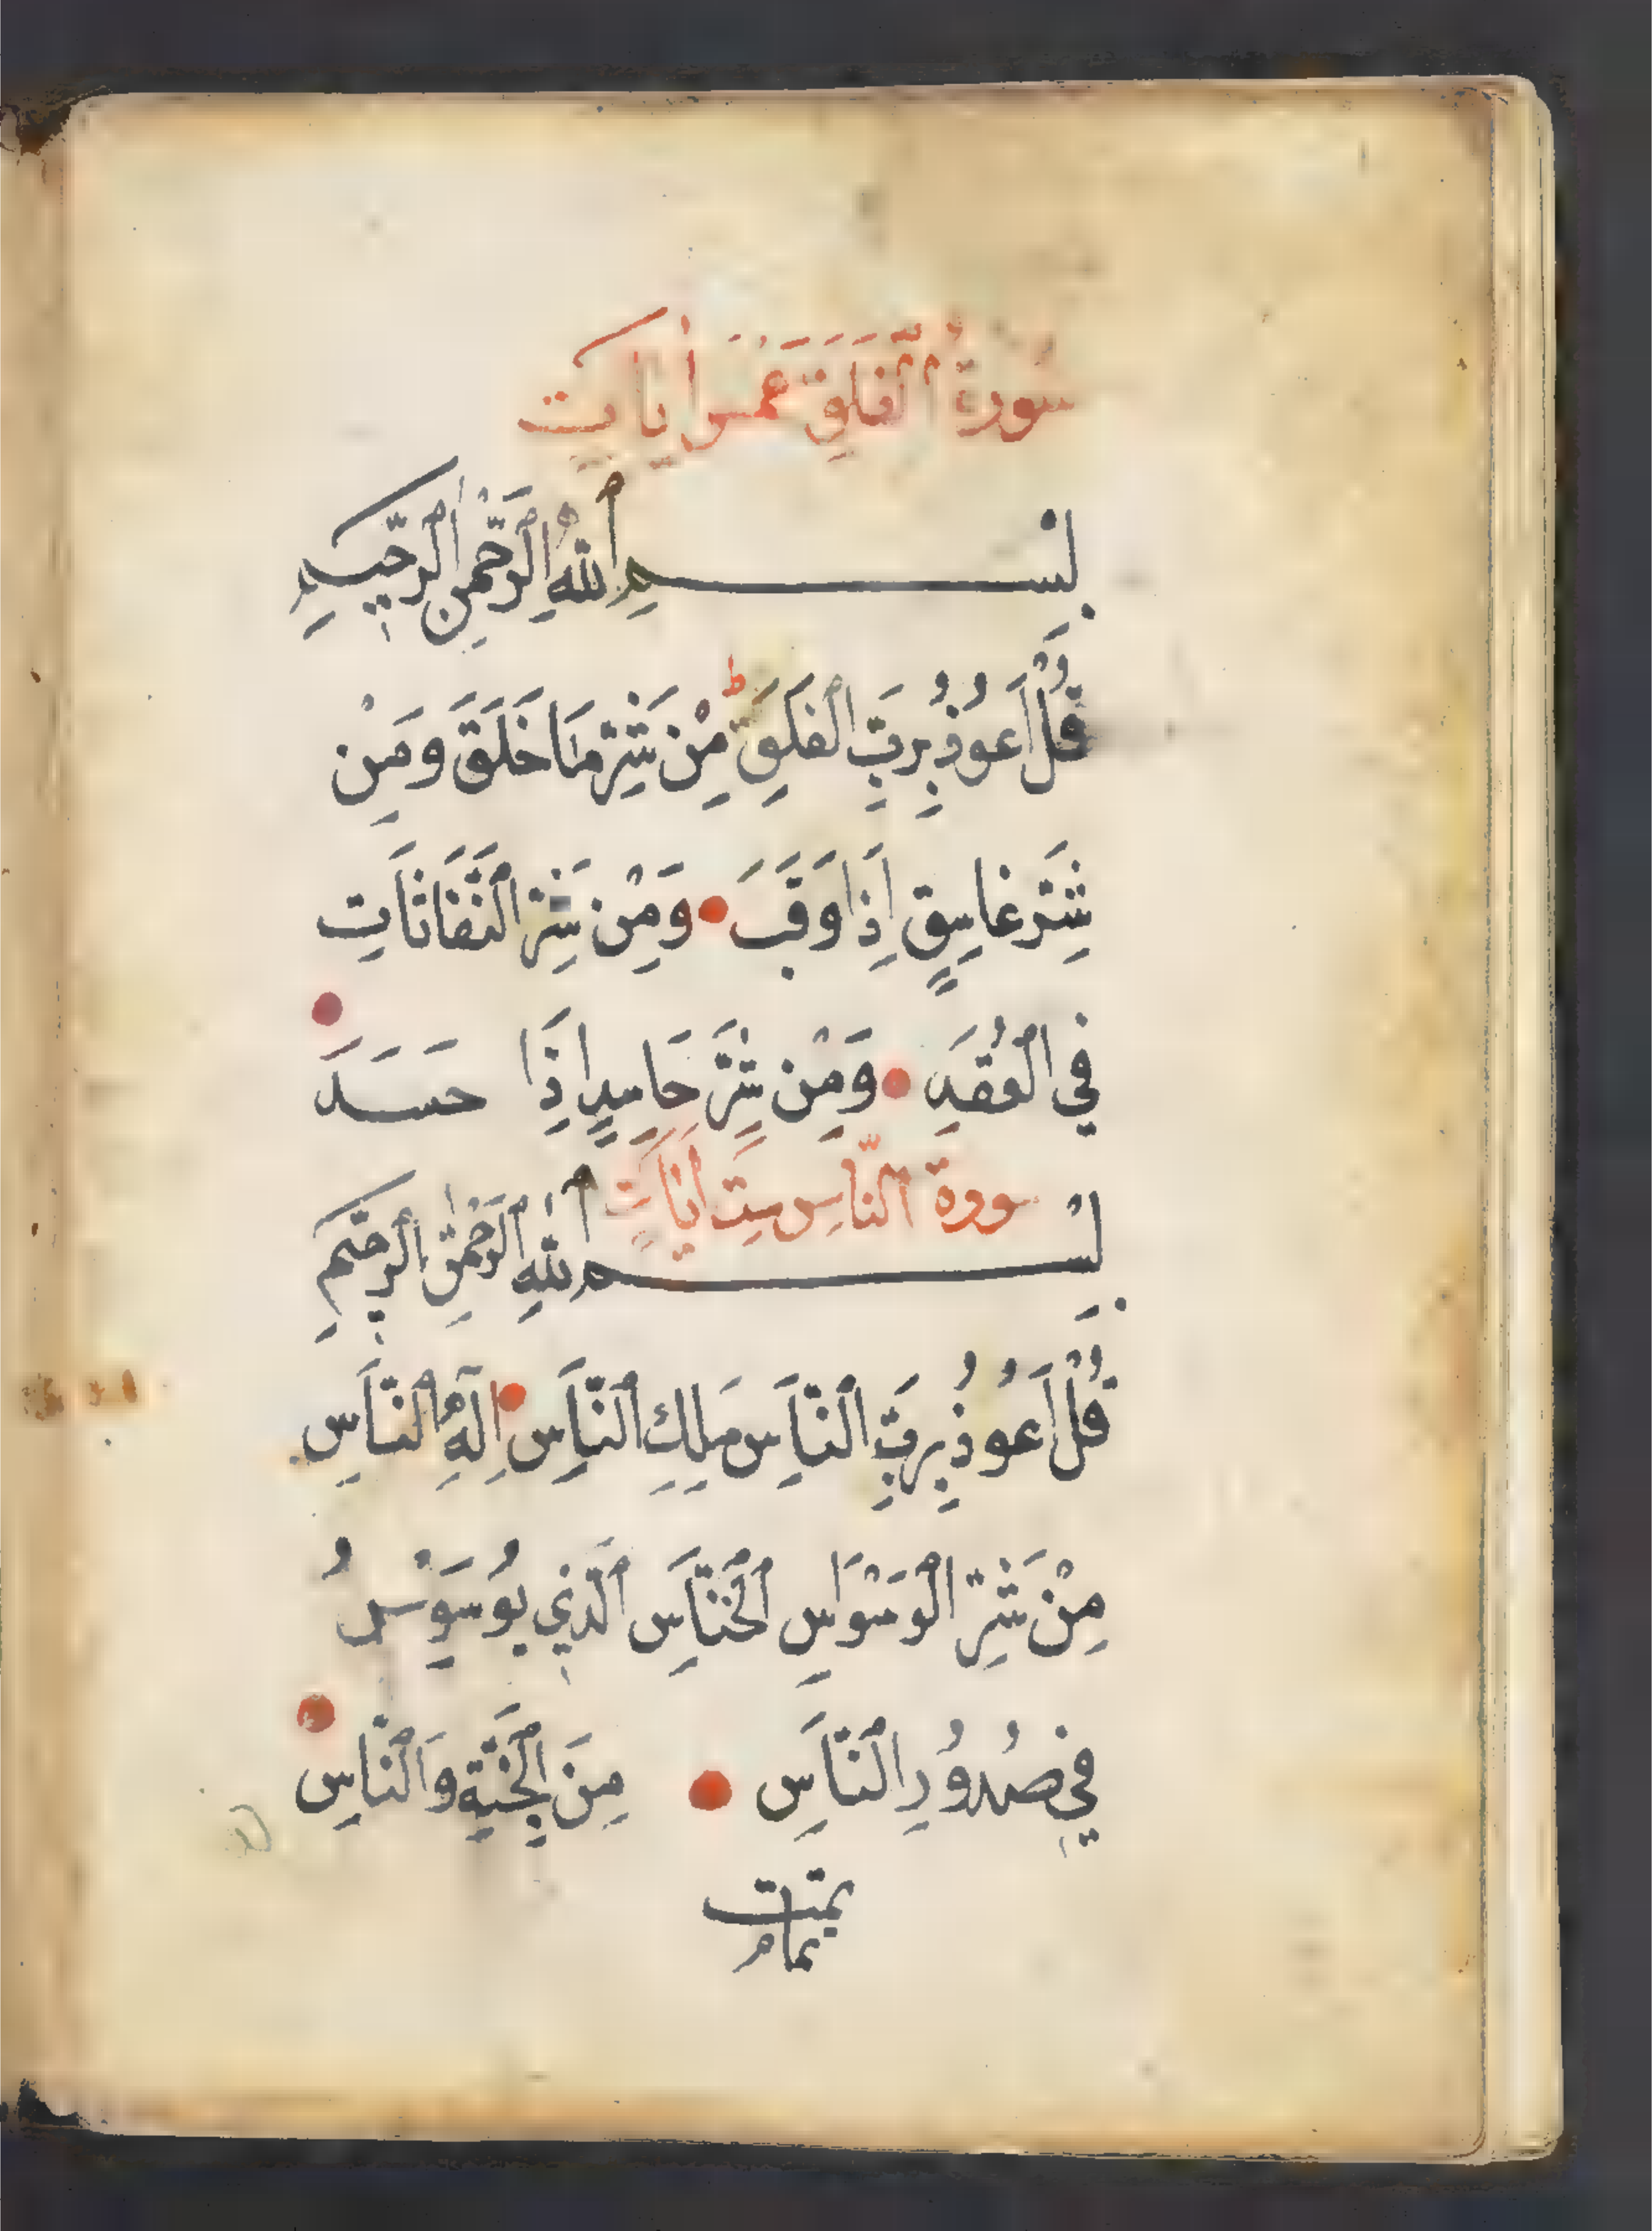 سُورَةُ ٱلْفَلَقِ خَمْسُ أٰيَاتٍ
بِسْمِ ٱللّٰهِ ٱلرَّحْمٰنِ ٱلرَّحِيمِ
قُلْ اَعُوذُ بِرَبِّ الْفَلَقِ مِنْ شَرِّ مَا خَلَقَ وَمِنْ
شَرِّ غَاسِقٍ اِذَا وَقَبَ وَمِنْ شَرِّ النَّفَّاثَاتِ
فِي الْعُقَدِ وَمِنْ شَرِّ حَاسِدٍ اِذَا حَسَدَ
سورة النَّاسِ سِتّ اٰيَاتٍ
بِسْمِ ٱللّٰهِ ٱلرَّحْمٰنِ ٱلرَّحِيمِ
قُلْ اَعُوذُ بِرَبِّ النَّاسِ مَلِكِ النَّاسِ اِلٰهِ النَّاسِ
مِنْ شَرِّ الْوَسْوَاسِ الْخَنَّاسِ الَّذِي يُوَسْوِسُ
فِي صُدُورِ النَّاسِ مِنَ الْجِنَّةِ وَالنَّاسِ
تمت
تمام